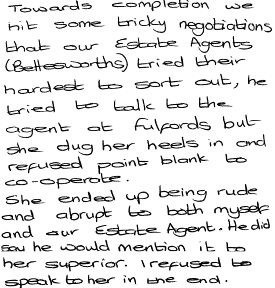 Towards completion we
hit some tricky negotiations
that our Estate Agents
(Bettesworths) tried their
hardest to sort out, he
tried to talk to the
agent at Fulfords but
she dug her heels in and
refused point blank to
co-operate.
She ended up being rude
and abrupt to both myself
and our Estate Agent. He did
say he would mention it to
her superior. I refused to
speak to her in the end.